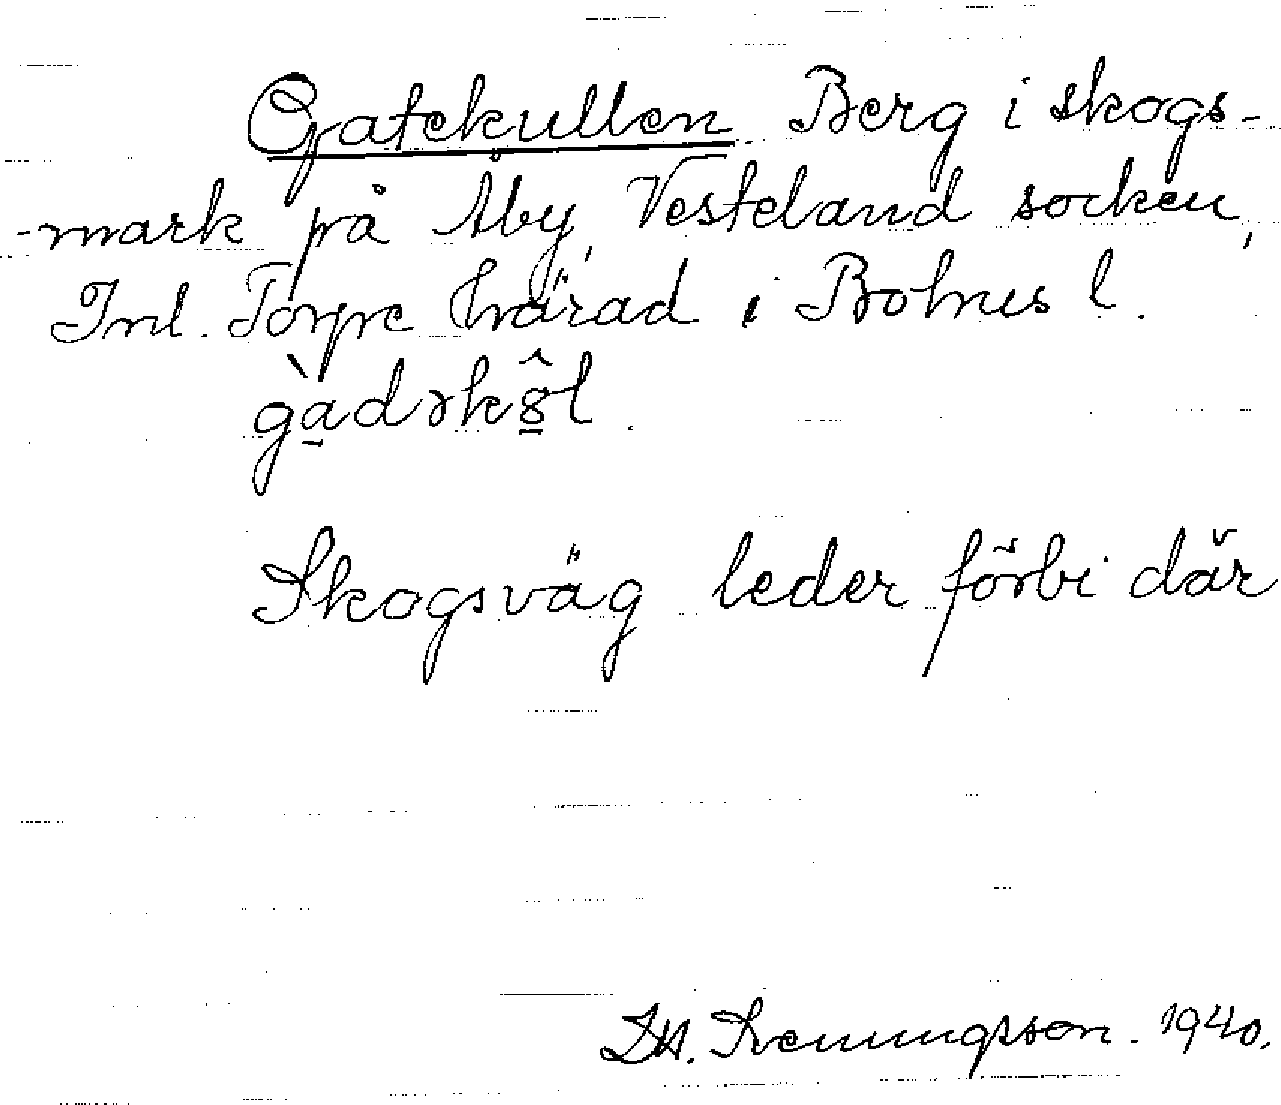 Gatekullen Berg i skogs-
-mark på Åby, Vesteland socken,
Inl. Torpe härad i Bohus l.
Skogsväg leder förbi där
1940.